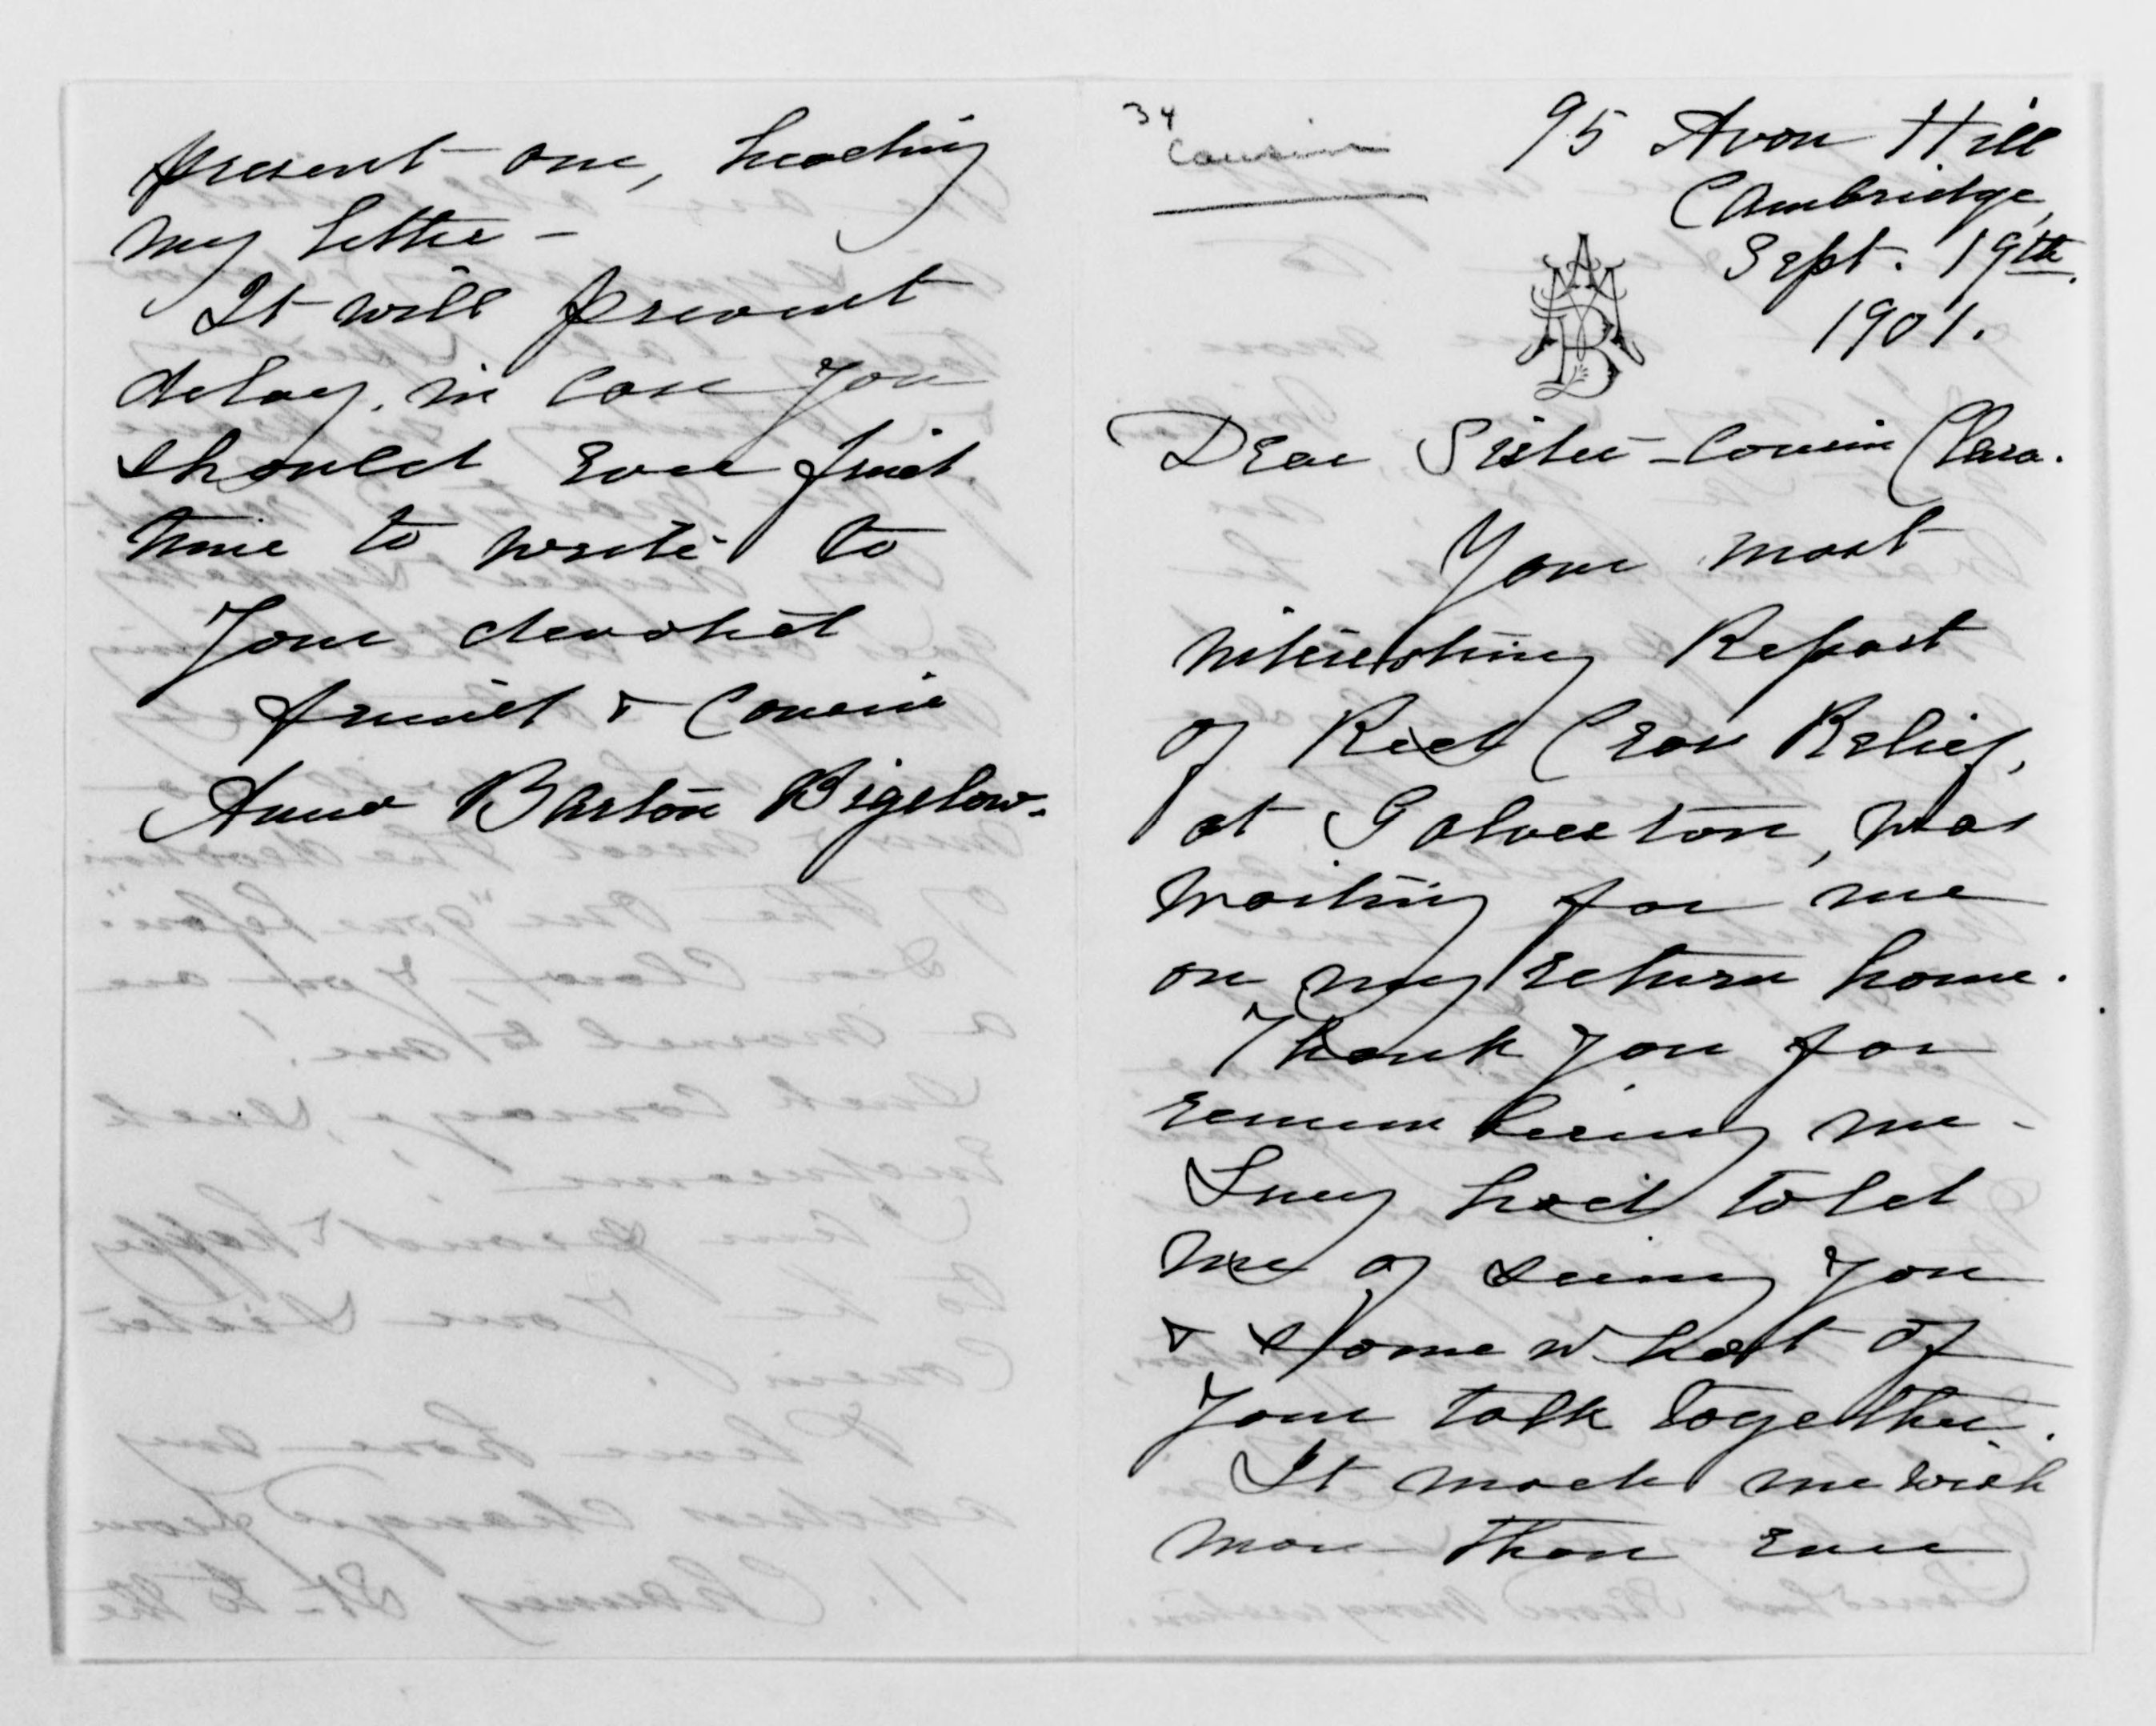 34
Cousin
95 Avon Hill
Cambridge,
Sept. 19th.
1901.
ABA
Dear Sister-Cousin Clara.
Your most
interesting Report
of Red Cross Relief,
at Galveston, was
waiting for me
on my return home.
Thank you for
remembering me -
Lucy had told
me of seeing you
& somewhat of
your talk together.
It made me wish
more than ever
present one, heading
my letter -
It will prevent
delay, in case you
should ever find
time to write to
Your devoted
friend & Cousin
Anna Barton Bigelow.